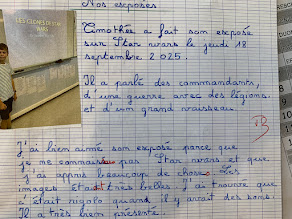 Nos exposés
LES CLONES DE STAR
WARS
Timothée a fait son exposé
sur Star wars le jeudi 18
septembre 2025.
Il a parlé des commandants,
d'une guerre avec des légions
et d'un grand vaisseau.
TB
J'ai bien aimé son exposé parce que
je ne connaissais pas Star wars et que
j'ai appris beaucoup de choses. Les
images était très belles. J'ai trouvé que
c'était rigolo quand il y avait des sons.
Il a très bien présenté.